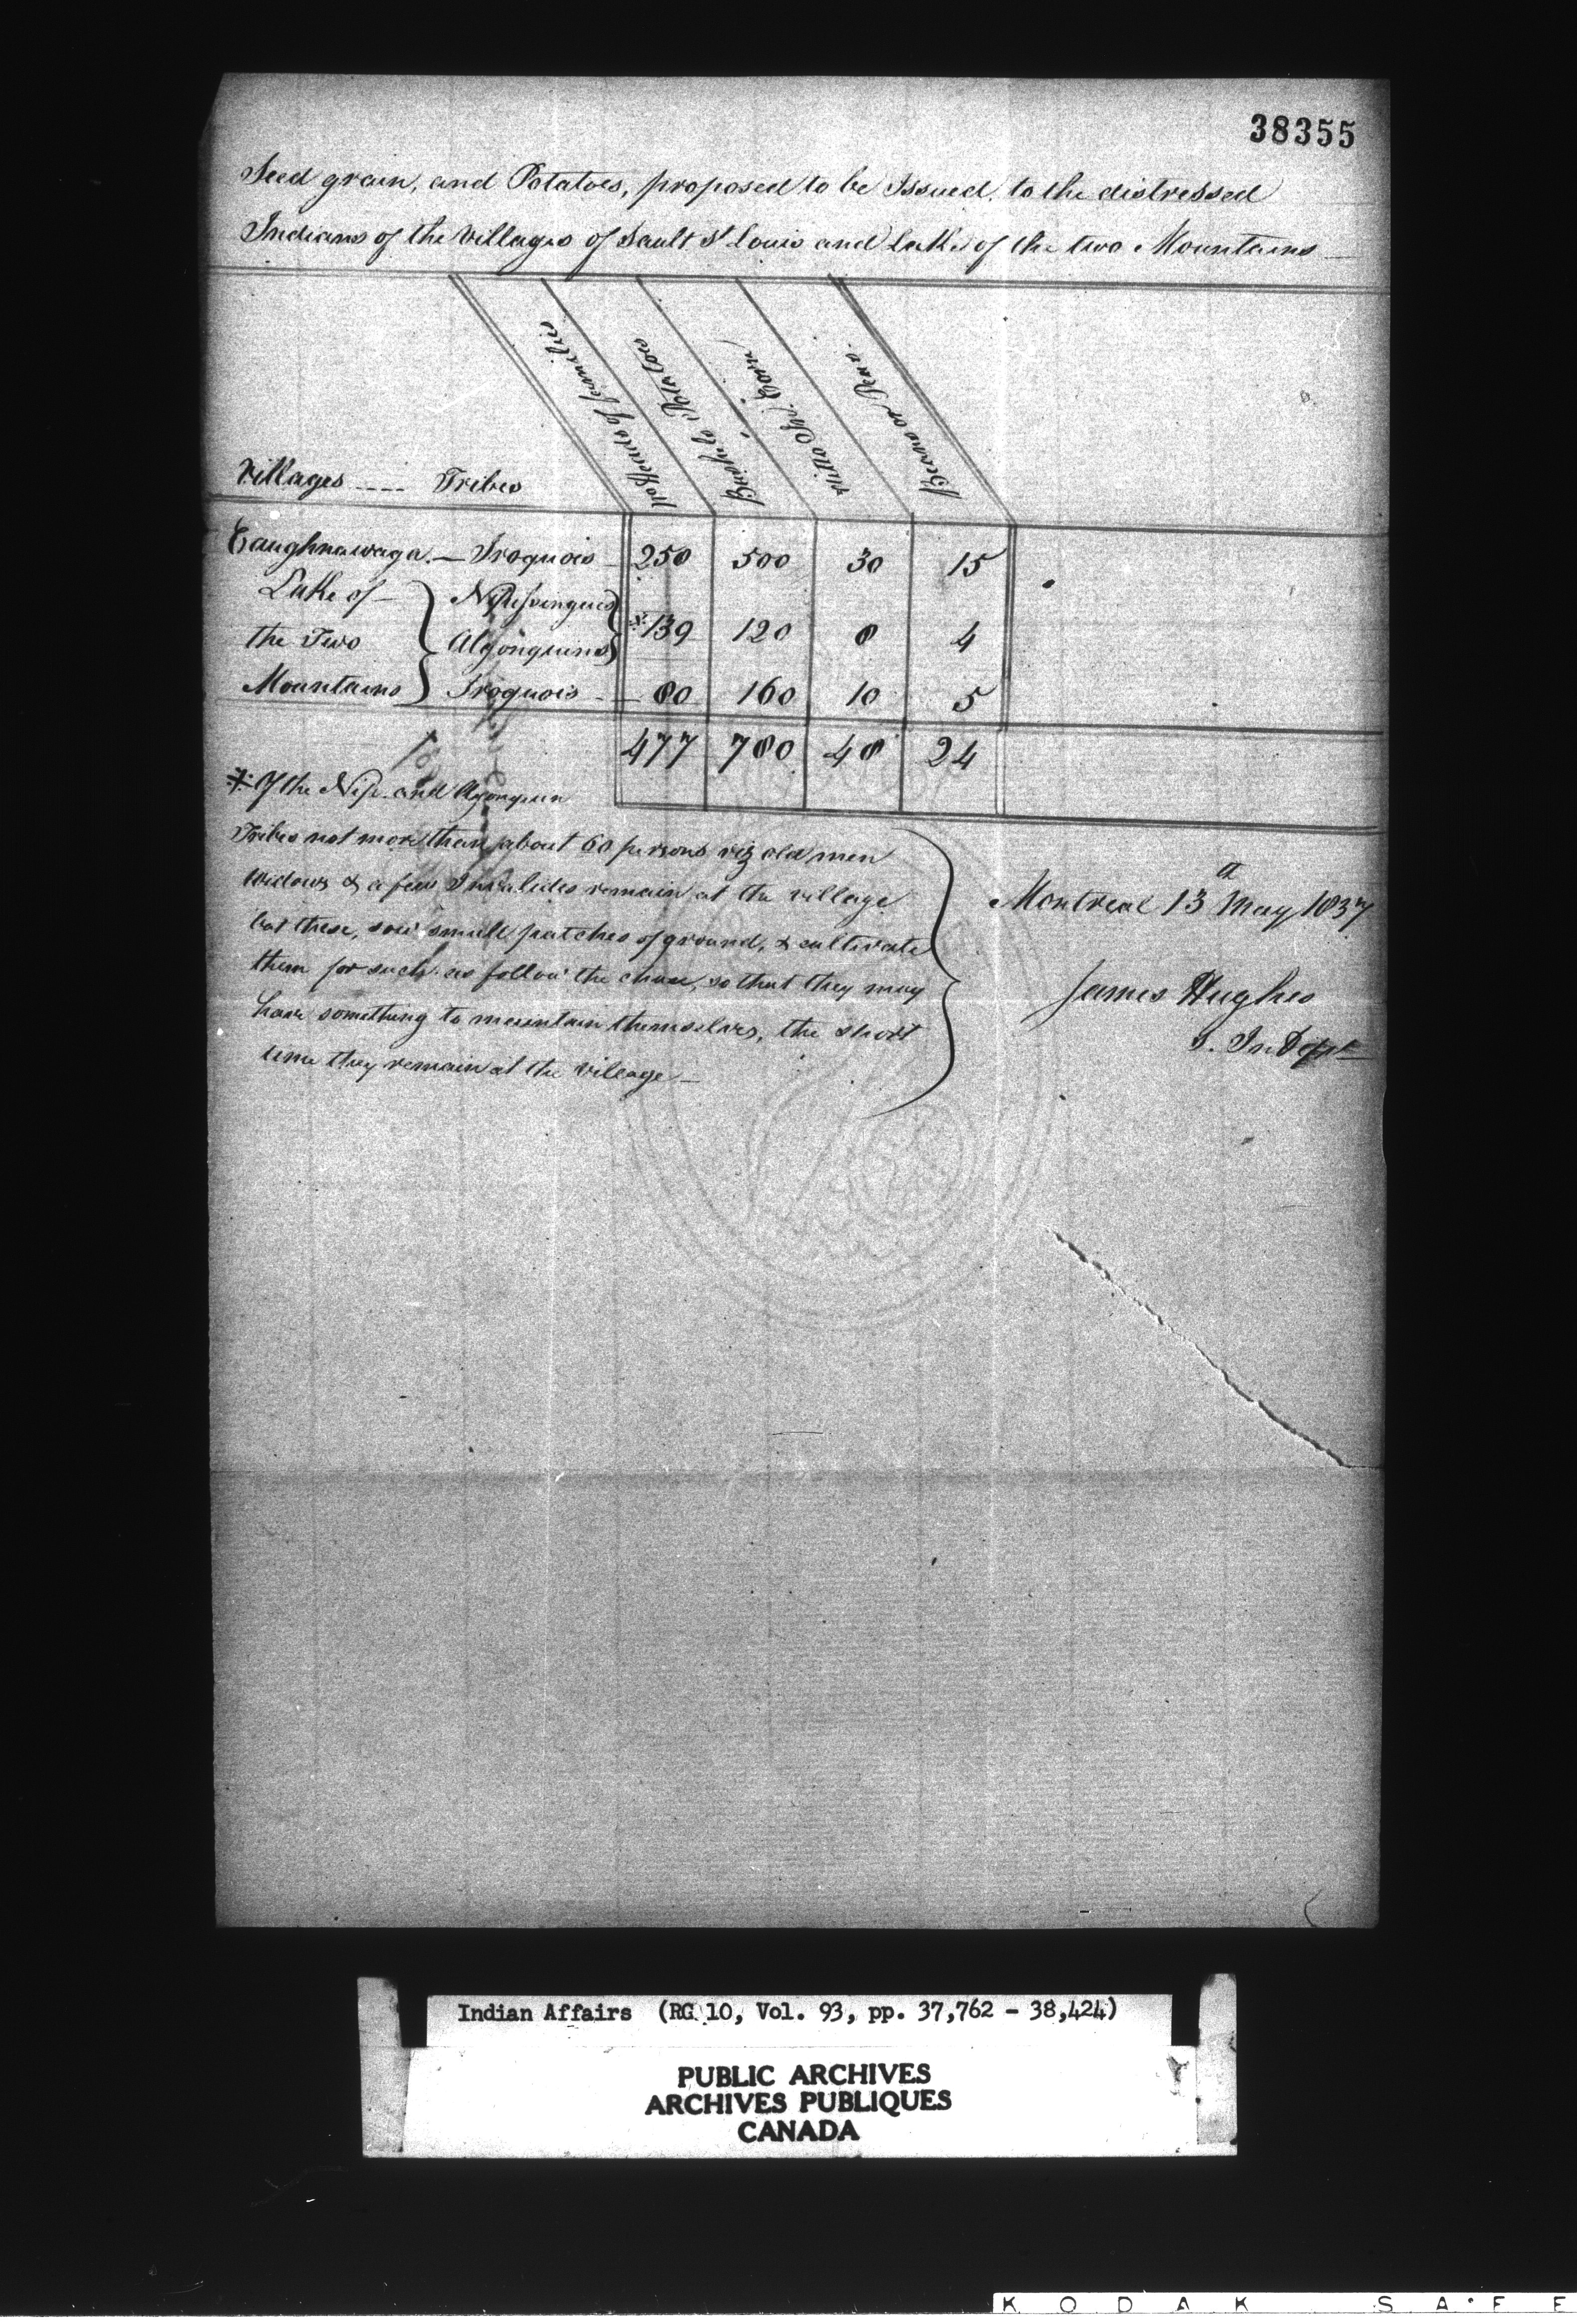 38355
Seed grain, and Potatoes, proposed to be Issued, to the distressed
Indians of the Villages of Sault St Louis and Lake of the two Mountains
Villages ---- Tribes
No Heads of families
Bushels Potatoes
Ditto Ind. Corn
Beans or Peas.
Caughnawaga. — Iroquois 250 500 30 15
Lake of — Nipissingues
the Two Algonquins *139 120 8 4
Mountains Iroquois — 80 160 10 5
477 780 48 24
* Of the Nip. and Algonquin
Tribes not more than about 60 persons viz old men
Widows & a few Invalides remain at the village
but these, sow small patches of ground, & cultivate
them for such as follow the chase, so that they may
have something to maintain themselves, the short
time they remain at the village —
Montreal 13th May 1837
James Hughes
S. In Dept
Indian Affairs (RG 10, Vol. 93, pp. 37,762 - 38,424)
PUBLIC ARCHIVES
ARCHIVES PUBLIQUES
CANADA
KODAK SAFE